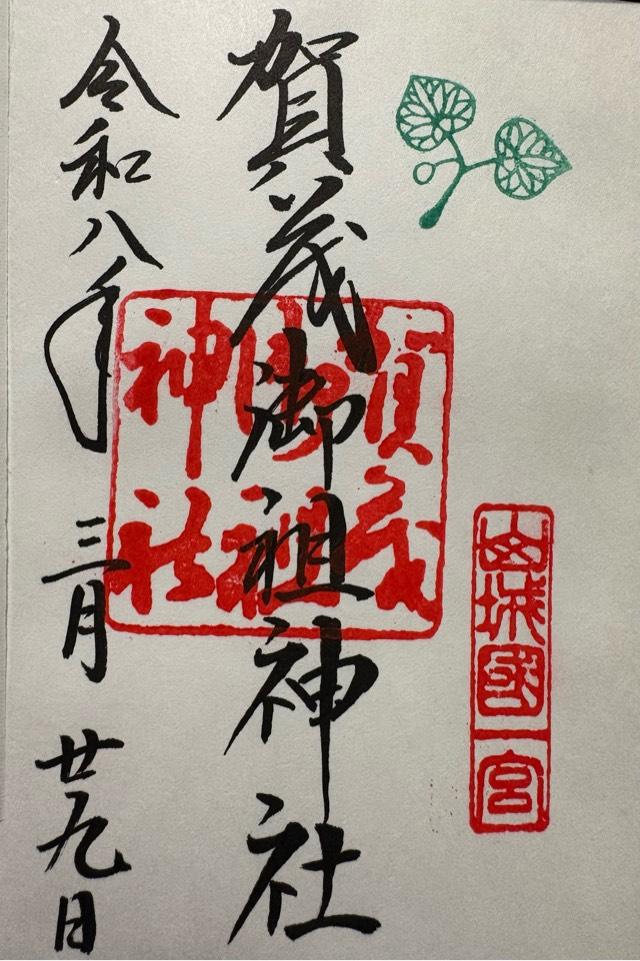 山城國一宮
賀茂御祖神社
賀茂御祖神社
令和八年 三月 廿九日